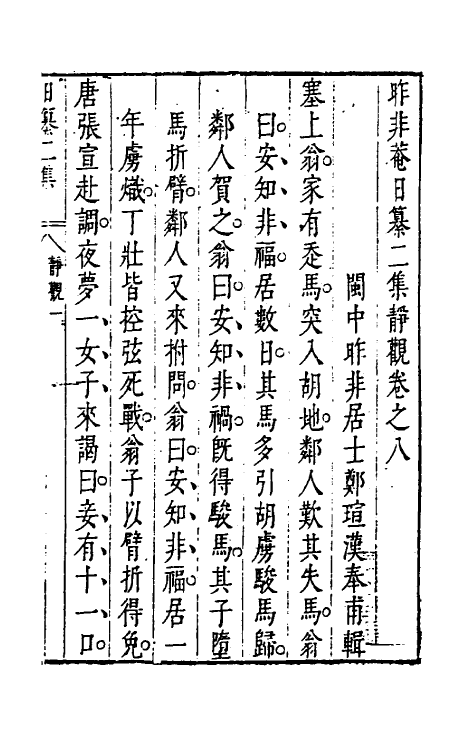 昨非菴日纂二集靜觀卷之八
閩中昨非居士鄭瑄漢奉甫輯
塞上翁家有悉馬突入胡地鄰人歎其失馬翁
曰安知非福居數日其馬多引胡虜駿馬歸
鄰人賀之翁曰安知非禍旣得駿馬其子墮
馬折臂鄰人又來拊問翁曰安知非福居一
年虜熾丁壯皆控弦死戰翁子以臂折得免
唐張宣赴調夜夢一女子來謁曰妾有十一口
日纂二集 八 靜觀 一